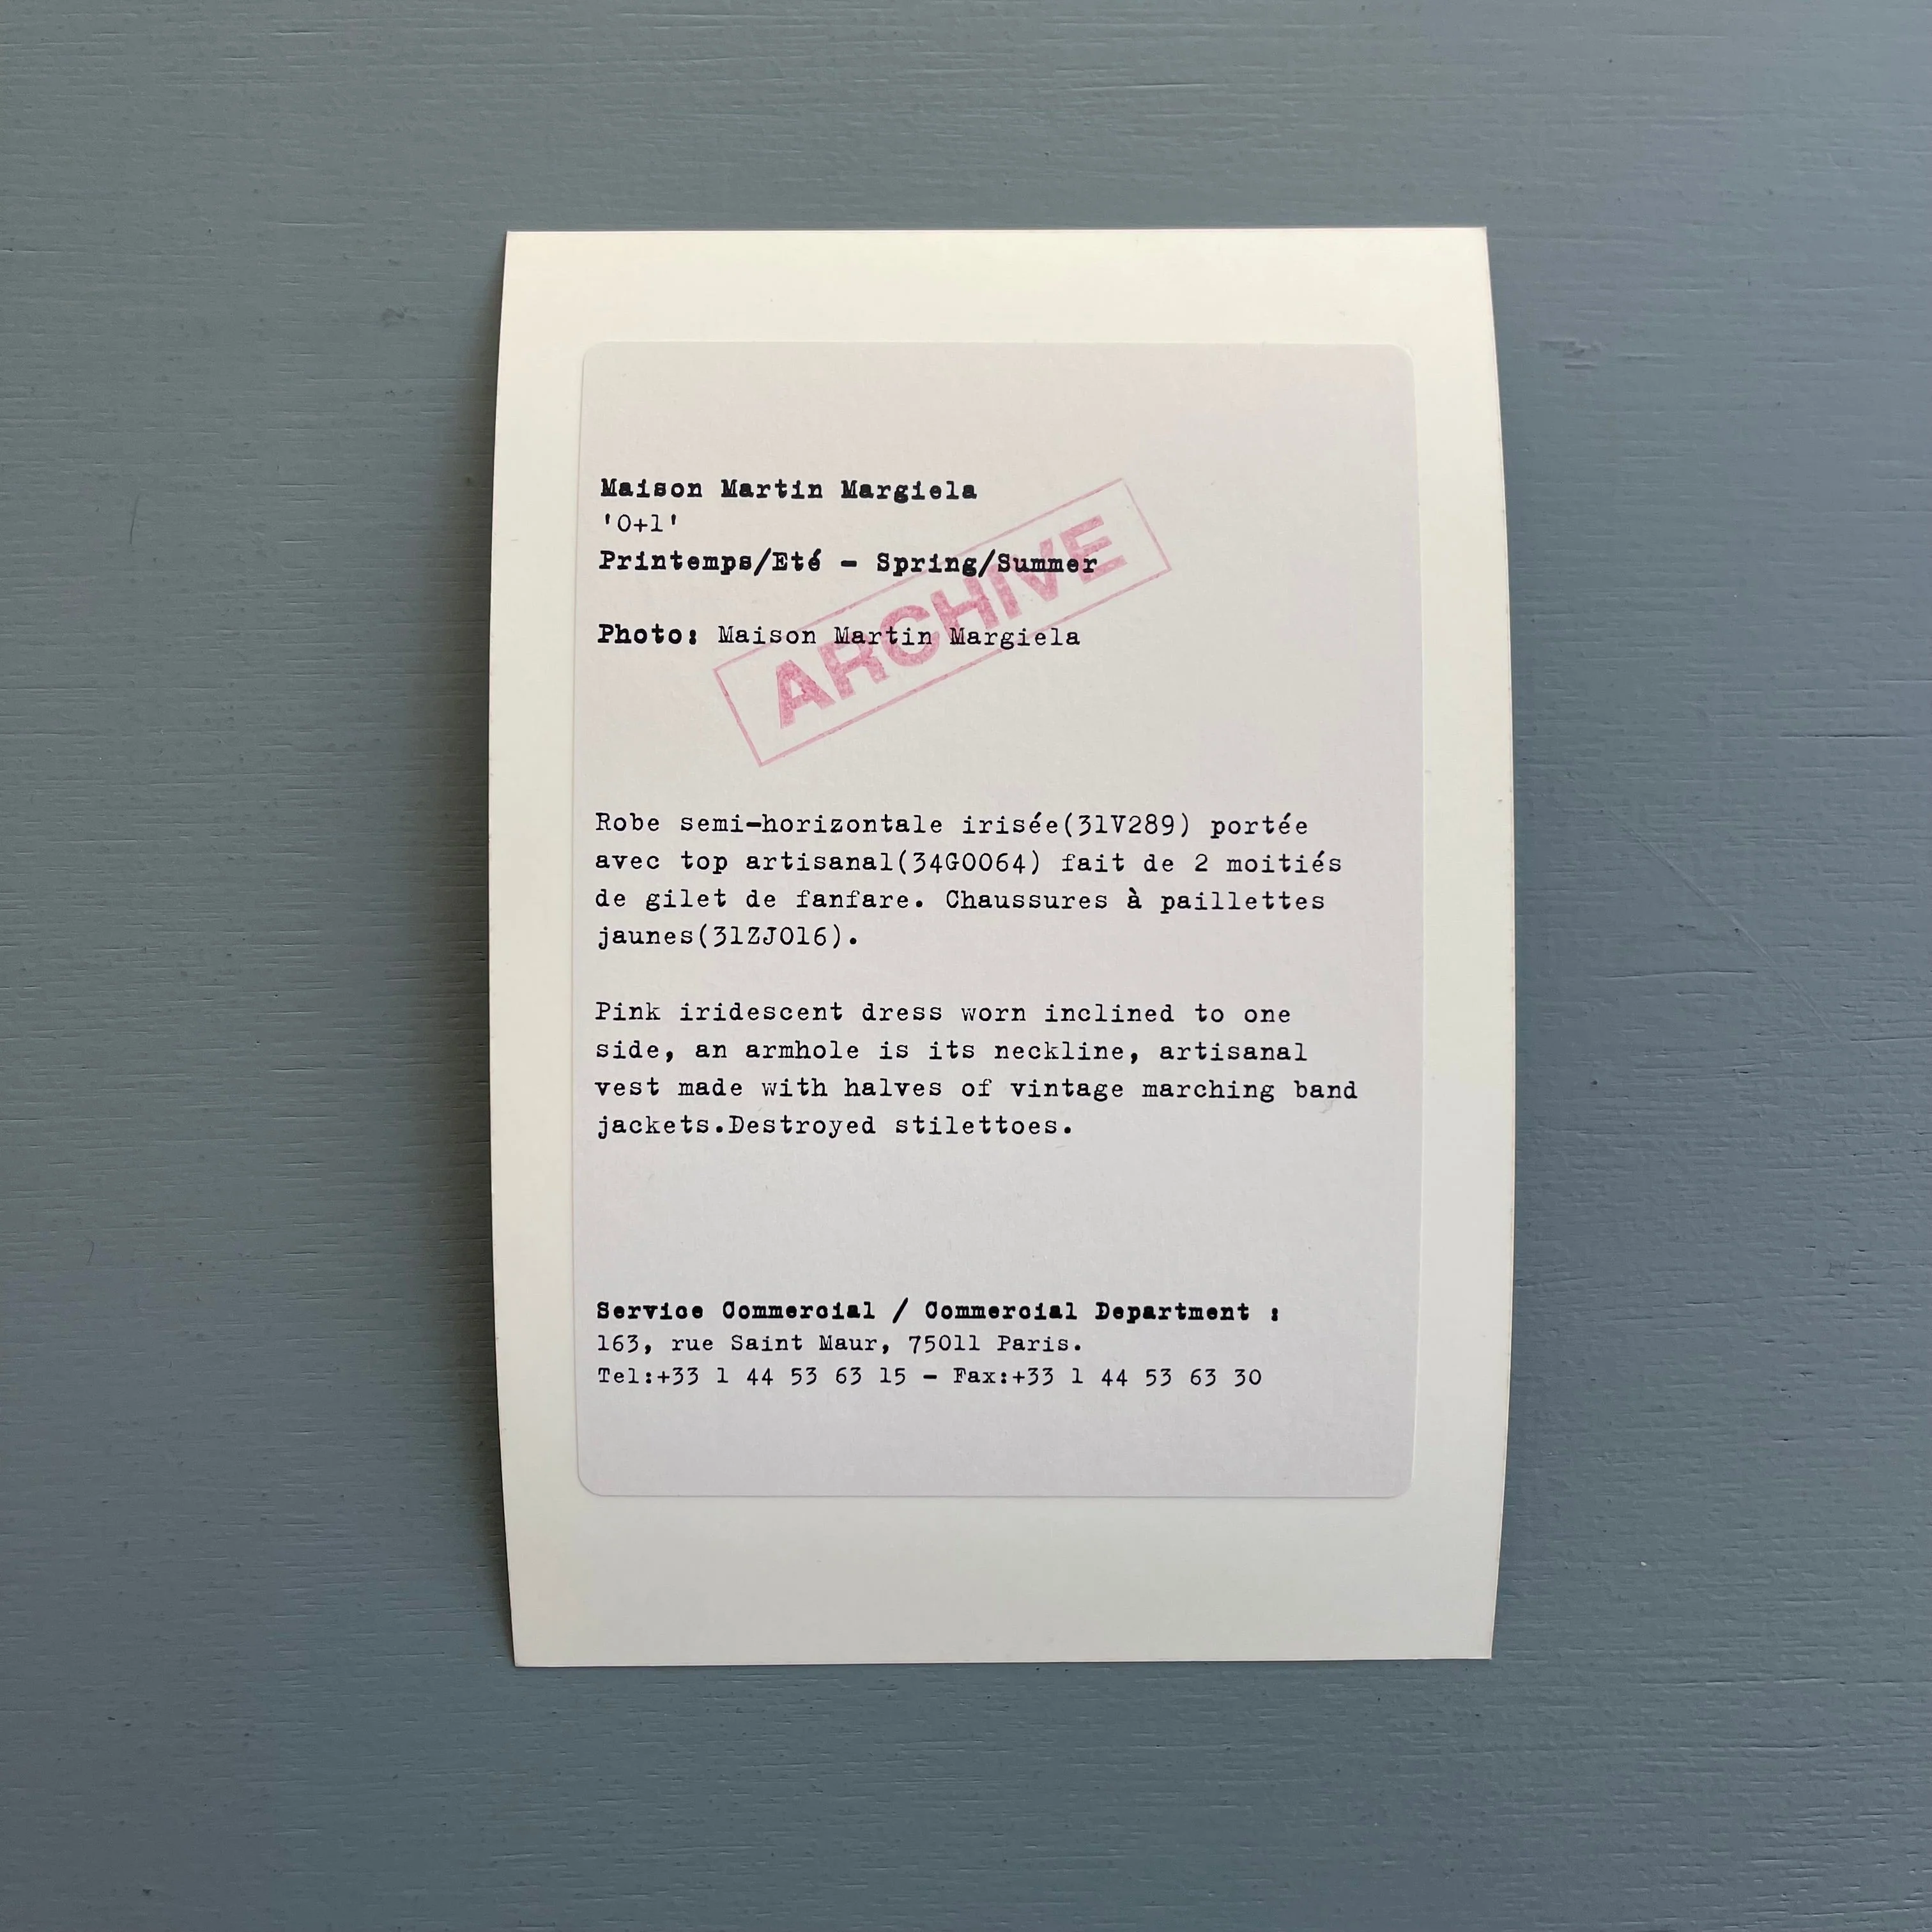 Maison Martin Margiela
'0+1'
Printemps/Eté - Spring/Summer
Photo: Maison Martin Margiela
ARCHIVE
Robe semi-horizontale irisée(31V289) portée
avec top artisanal(34G0064) fait de 2 moitiés
de gilet de fanfare. Chaussures à paillettes
jaunes(31ZJ016).
Pink iridescent dress worn inclined to one
side, an armhole is its neckline, artisanal
vest made with halves of vintage marching band
jackets.Destroyed stilettoes.
Service Commercial / Commercial Department :
163, rue Saint Maur, 75011 Paris.
Tel:+33 1 44 53 63 15 - Fax:+33 1 44 53 63 30